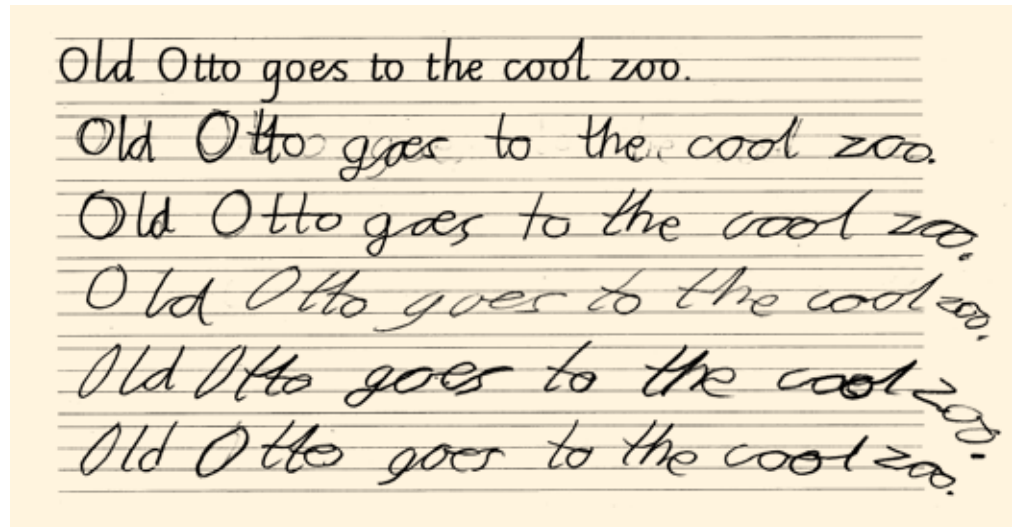 Old Otto goes to the cool zoo.
Old Otto goes to the cool zoo.
Old Otto goes to the cool zoo.
Old Otto goes to the cool zoo.
Old Otto goes to the cool zoo.
Old Otto goes to the cool zoo.